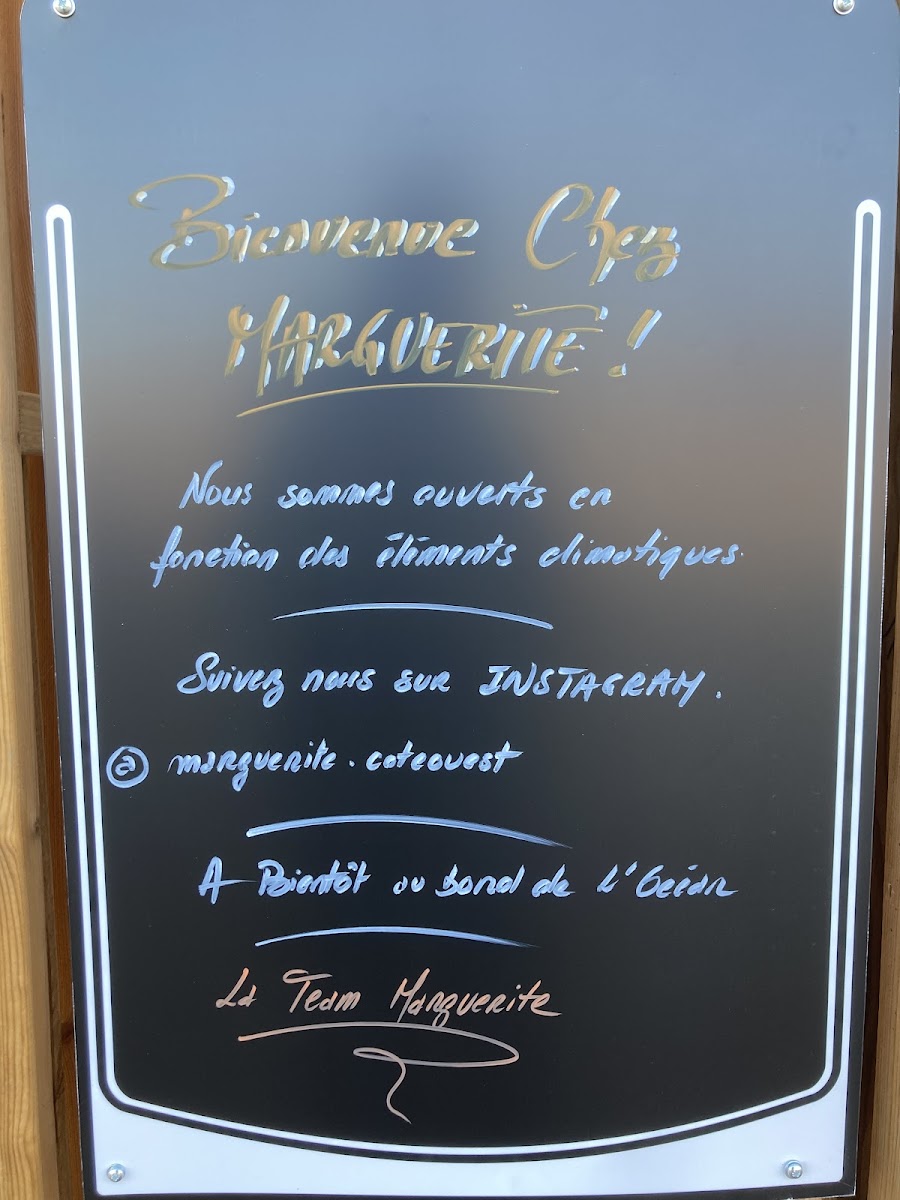 Bienvenue Chez
MARGUERITE !
Nous sommes ouverts en
fonction des éléments climatiques.
Suivez nous sur INSTAGRAM.
@ marguerite.coteouest
A Bientôt au bord de L'Océan
La Team Marguerite